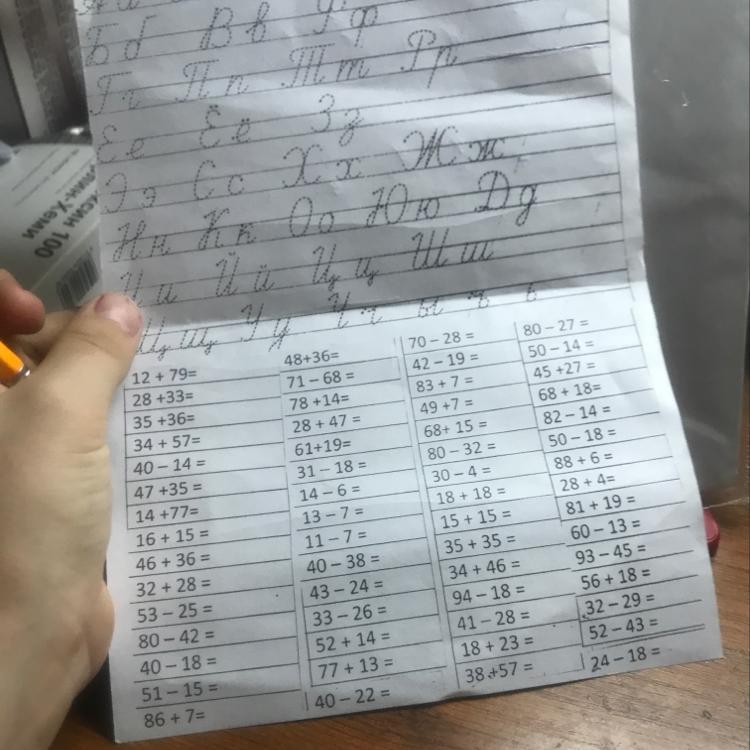 Б б В в Ф ф
Г г П п Т т Р р
Е е Ё ё З з
Э э С с Х х Ж ж
Н н К к О о Ю ю Д д
И и Й й Ц ц Ш ш
Щ щ У у Ч ч ы ъ ь
12 + 79=
28 +33=
35 +36=
34 + 57=
40 – 14 =
47 +35 =
14 +77=
16 + 15 =
46 + 36 =
32 + 28 =
53 – 25 =
80 – 42 =
40 – 18 =
51 – 15 =
86 + 7=
48+36=
71 – 68 =
78 +14=
28 + 47 =
61+19=
31 – 18 =
14 – 6 =
13 – 7 =
11 – 7 =
40 – 38 =
43 – 24 =
33 – 26 =
52 + 14 =
77 + 13 =
40 – 22 =
70 – 28 =
42 – 19 =
83 + 7 =
49 +7 =
68+ 15 =
80 – 32 =
30 – 4 =
18 + 18 =
15 + 15 =
35 + 35 =
34 + 46 =
94 – 18 =
41 – 28 =
18 + 23 =
38 +57 =
80 – 27 =
50 – 14 =
45 +27 =
68 + 18=
82 – 14 =
50 – 18 =
88 + 6 =
28 + 4=
81 + 19 =
60 – 13 =
93 – 45 =
56 + 18 =
32 – 29 =
52 – 43 =
24 – 18 =
100